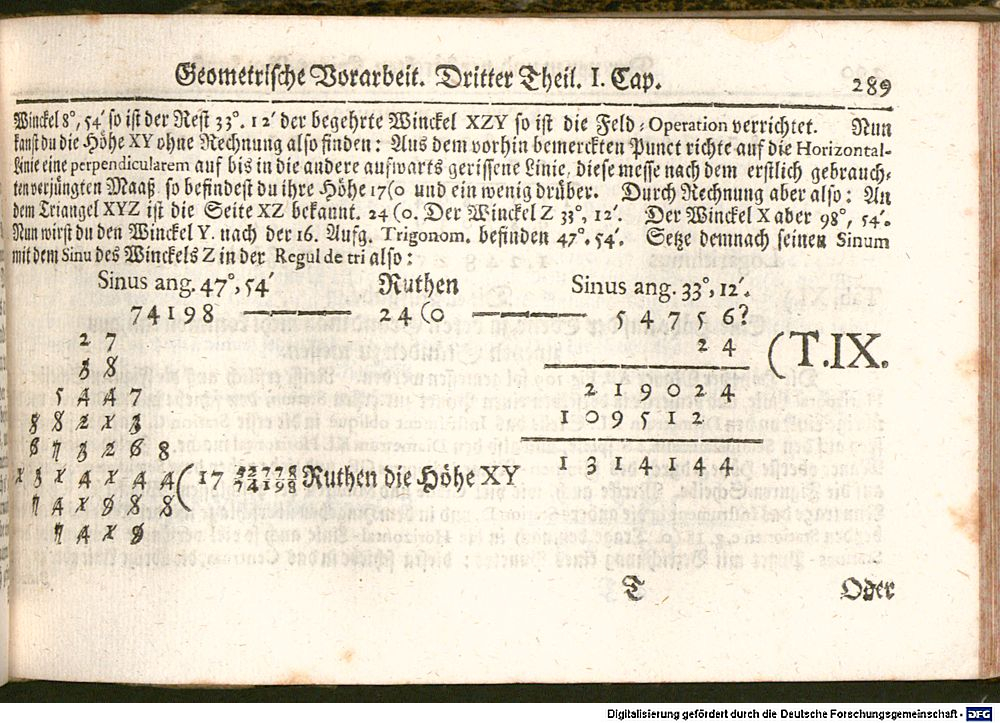 Geometrische Vorarbeit. Dritter Theil. I. Cap. 289
Winckel 8°, 54′ so ist der Rest 33°. 12′ der begehrte Winckel XZY so ist die Feld-Operation verrichtet. Nun
kanst du die Höhe XY ohne Rechnung also finden: Aus dem vorhin bemerckten Punct richte auf die Horizontal-
Linie eine perpendicularem auf bis in die andere aufwarts gerissene Linie, diese messe nach dem erstlich gebrauch-
ten verjüngten Maaß so befindest du ihre Höhe 17(0 und ein wenig drüber. Durch Rechnung aber also: An
dem Triangel XYZ ist die Seite XZ bekannt. 24(0. Der Winckel Z 33°, 12′. Der Winckel X aber 98°, 54′.
Nun wirst du den Winckel Y. nach der 16. Aufg. Trigonom. befinden 47°. 54′. Setze demnach seinen Sinum
mit dem Sinu des Winckels Z in der Regul de tri also:
Sinus ang. 47°, 54′ Ruthen Sinus ang. 33°, 12′.
74198 — 24(0 — 54756?
27 24 (T.IX.
38
219024
5447
109512
88213
1314144
673268
1314144 (17 52778/74198 Ruthen die Höhe XY
741988
7419
T Oder
Digitalisierung gefördert durch die Deutsche Forschungsgemeinschaft - DFG